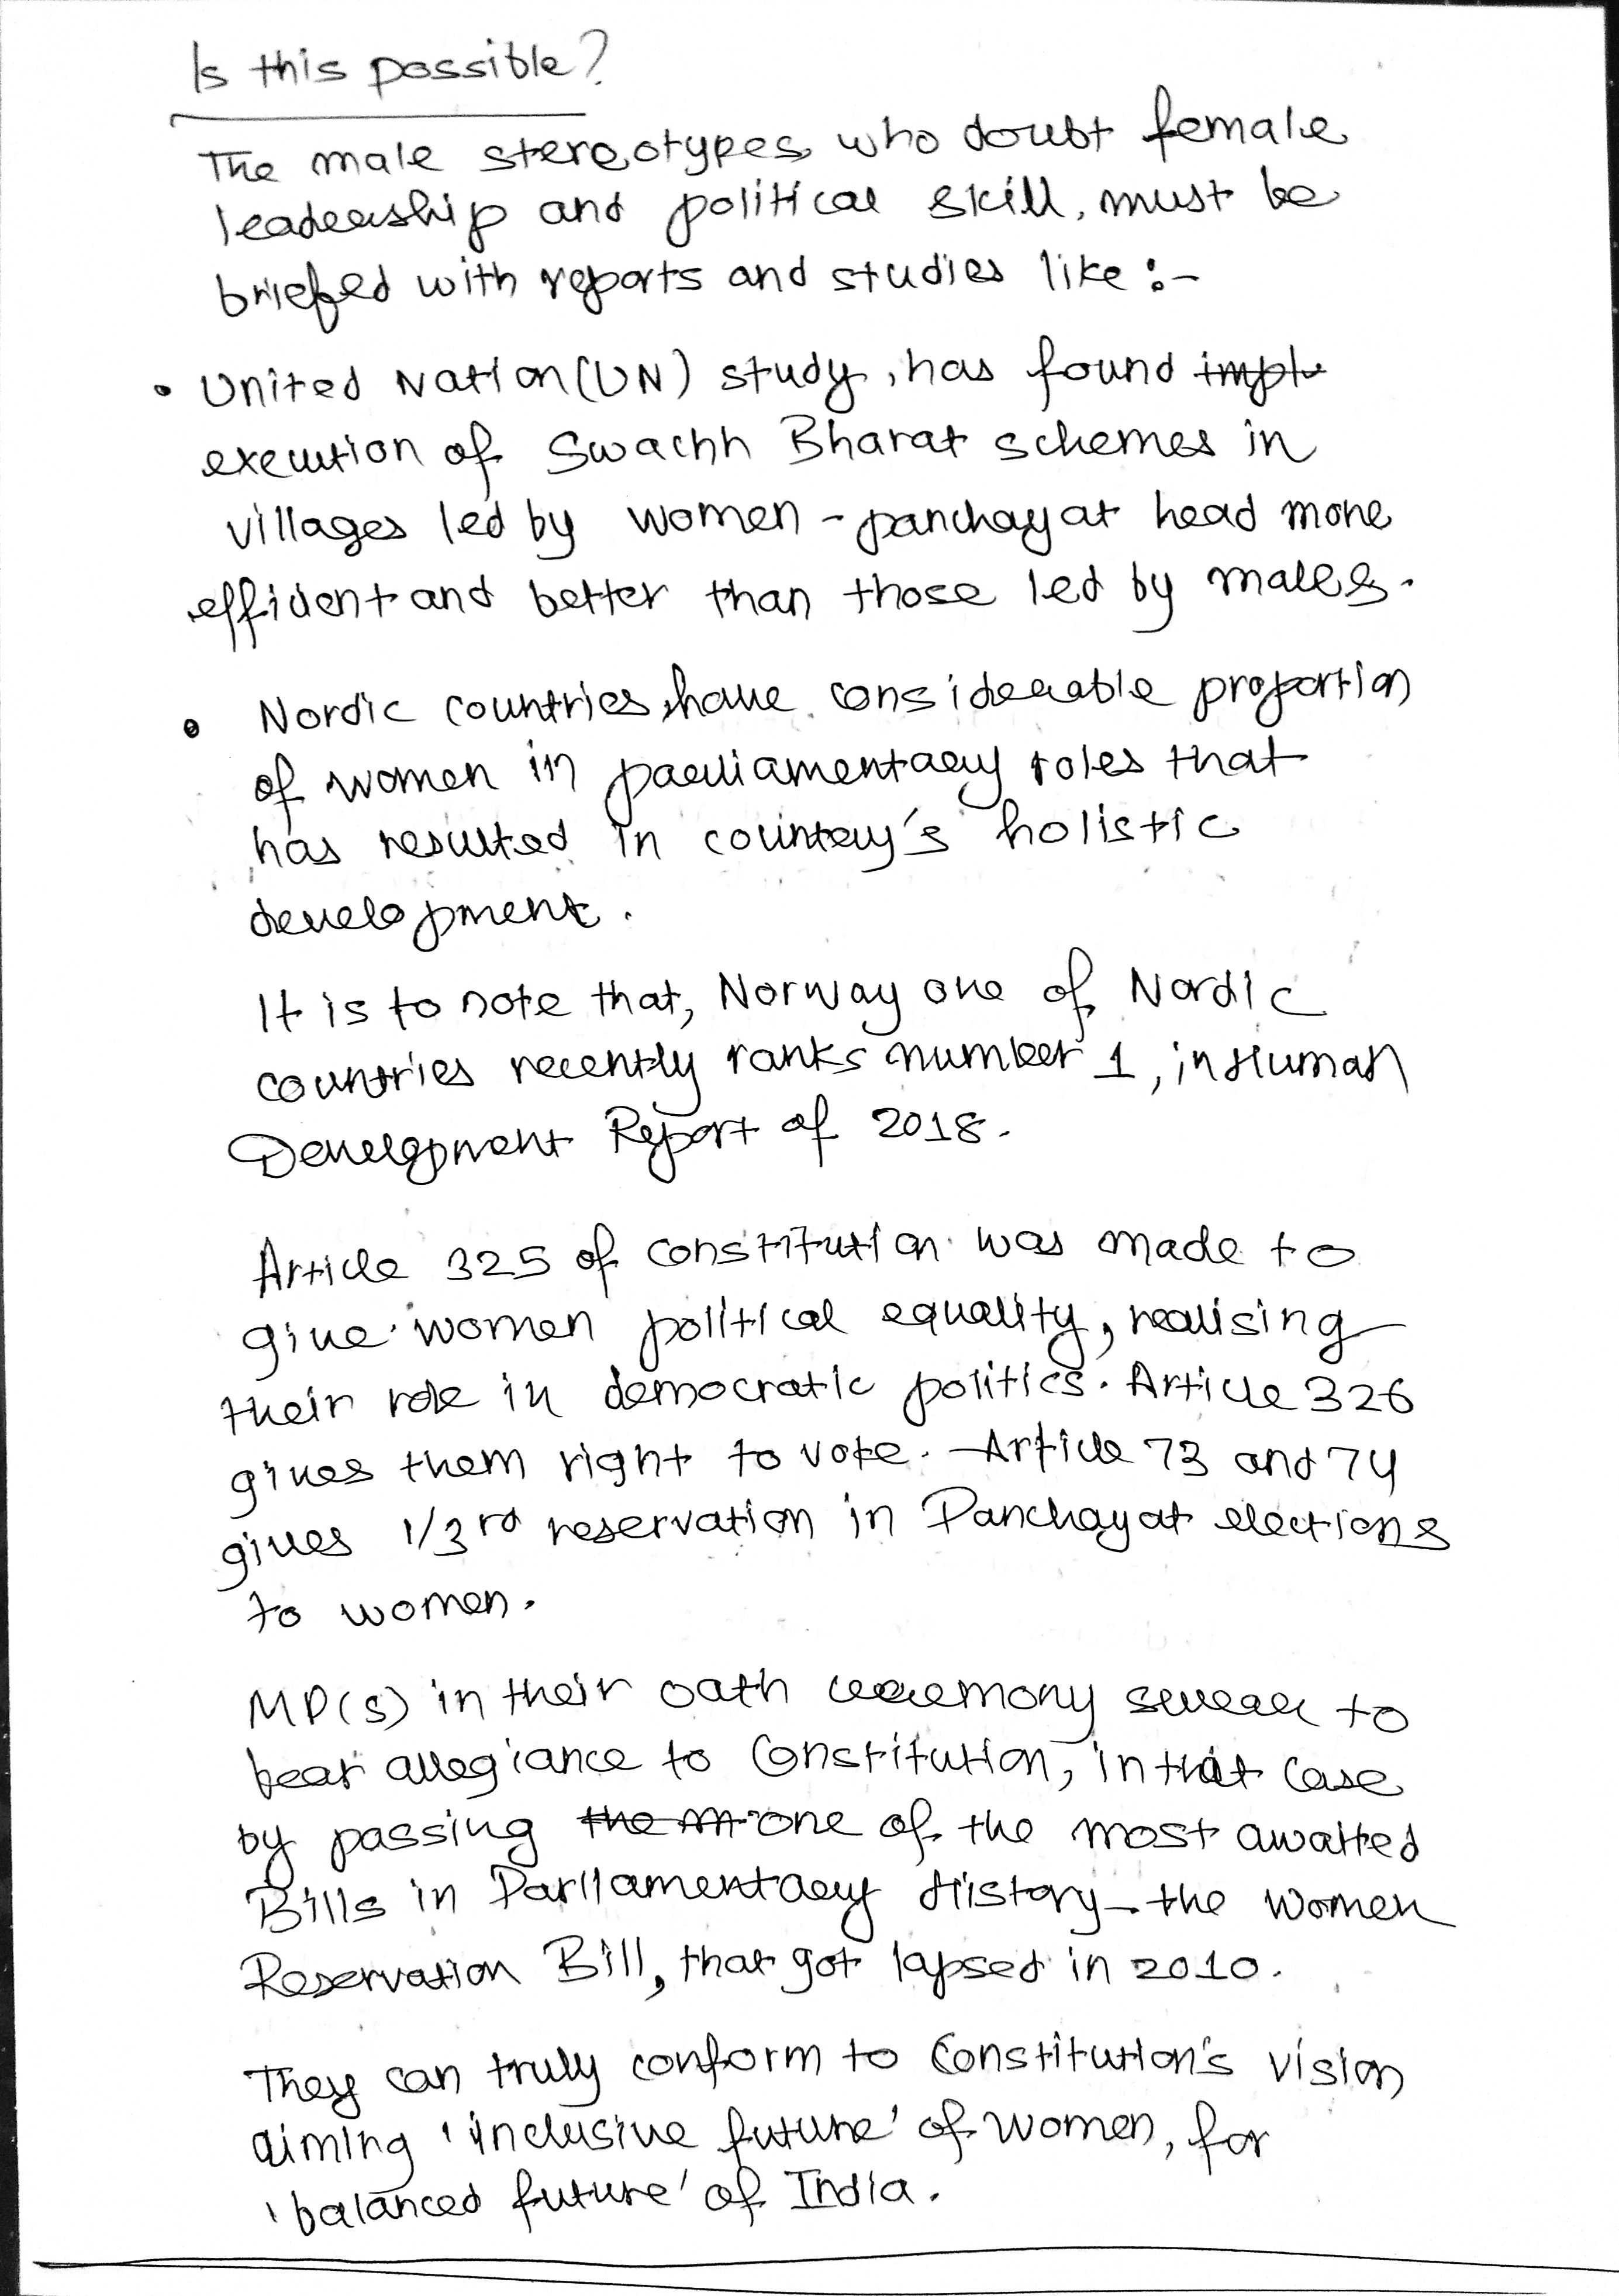 Is this possible?
The male stereotypes, who doubt female
leadership and political skill, must be
briefed with reports and studies like :-
• United Nation (UN) study, has found imple
execution of Swachh Bharat schemes in
villages led by women - panchayat head more
efficient and better than those led by males.
• Nordic countries, have considerable proportion
of women in parliamentary roles that
has resulted in country's holistic
development.
It is to note that, Norway one of Nordic
countries recently ranks number 1, in Human
Development Report of 2018.
Article 325 of constitution was made to
give women political equality, realising
their role in democratic politics. Article 326
gives them right to vote. Article 73 and 74
gives 1/3rd reservation in Panchayat elections
to women.
MP(s) in their oath ceremony swear to
bear allegiance to Constitution, in that case
by passing the m one of the most awaited
Bills in Parliamentary History - the Women
Reservation Bill, that got lapsed in 2010.
They can truly conform to Constitution's vision
aiming 'inclusive future' of women, for
'balanced future' of India.